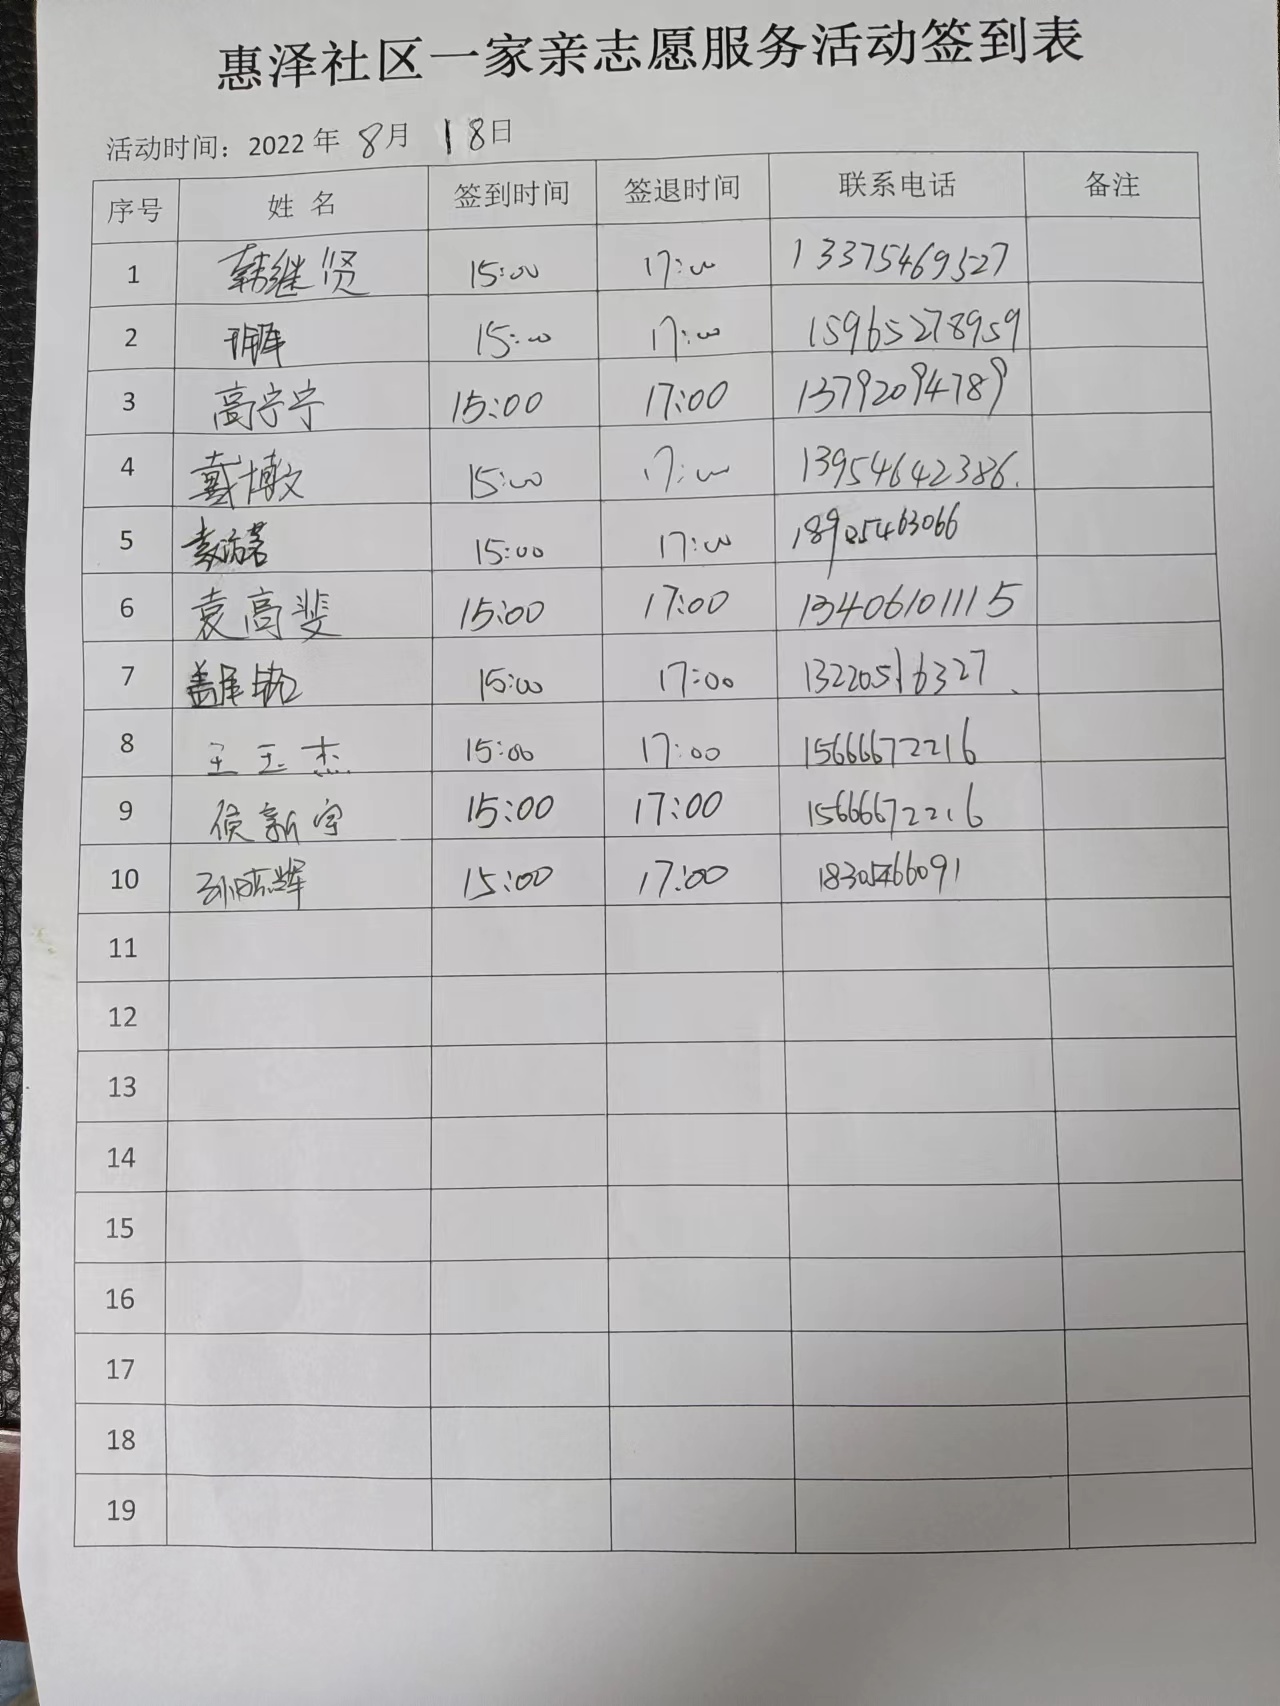 惠泽社区一家亲志愿服务活动签到表
活动时间：2022 年 8月 18日
序号 姓 名 签到时间 签退时间 联系电话 备注
1 韩继贤 15:00 17:00 13375469527
2 15:00 17:00 15965278959
3 高宁宁 15:00 17:00 13792094789
4 戴博文 15:00 17:00 13954642386.
5 15:00 17:00 18905463066
6 袁高斐 15:00 17:00 13406101115
7 15:00 17:00 13220516327
8 王玉杰 15:00 17:00 15666672216
9 侯新宇 15:00 17:00 15666672216
10 15:00 17:00 18305466091
11
12
13
14
15
16
17
18
19